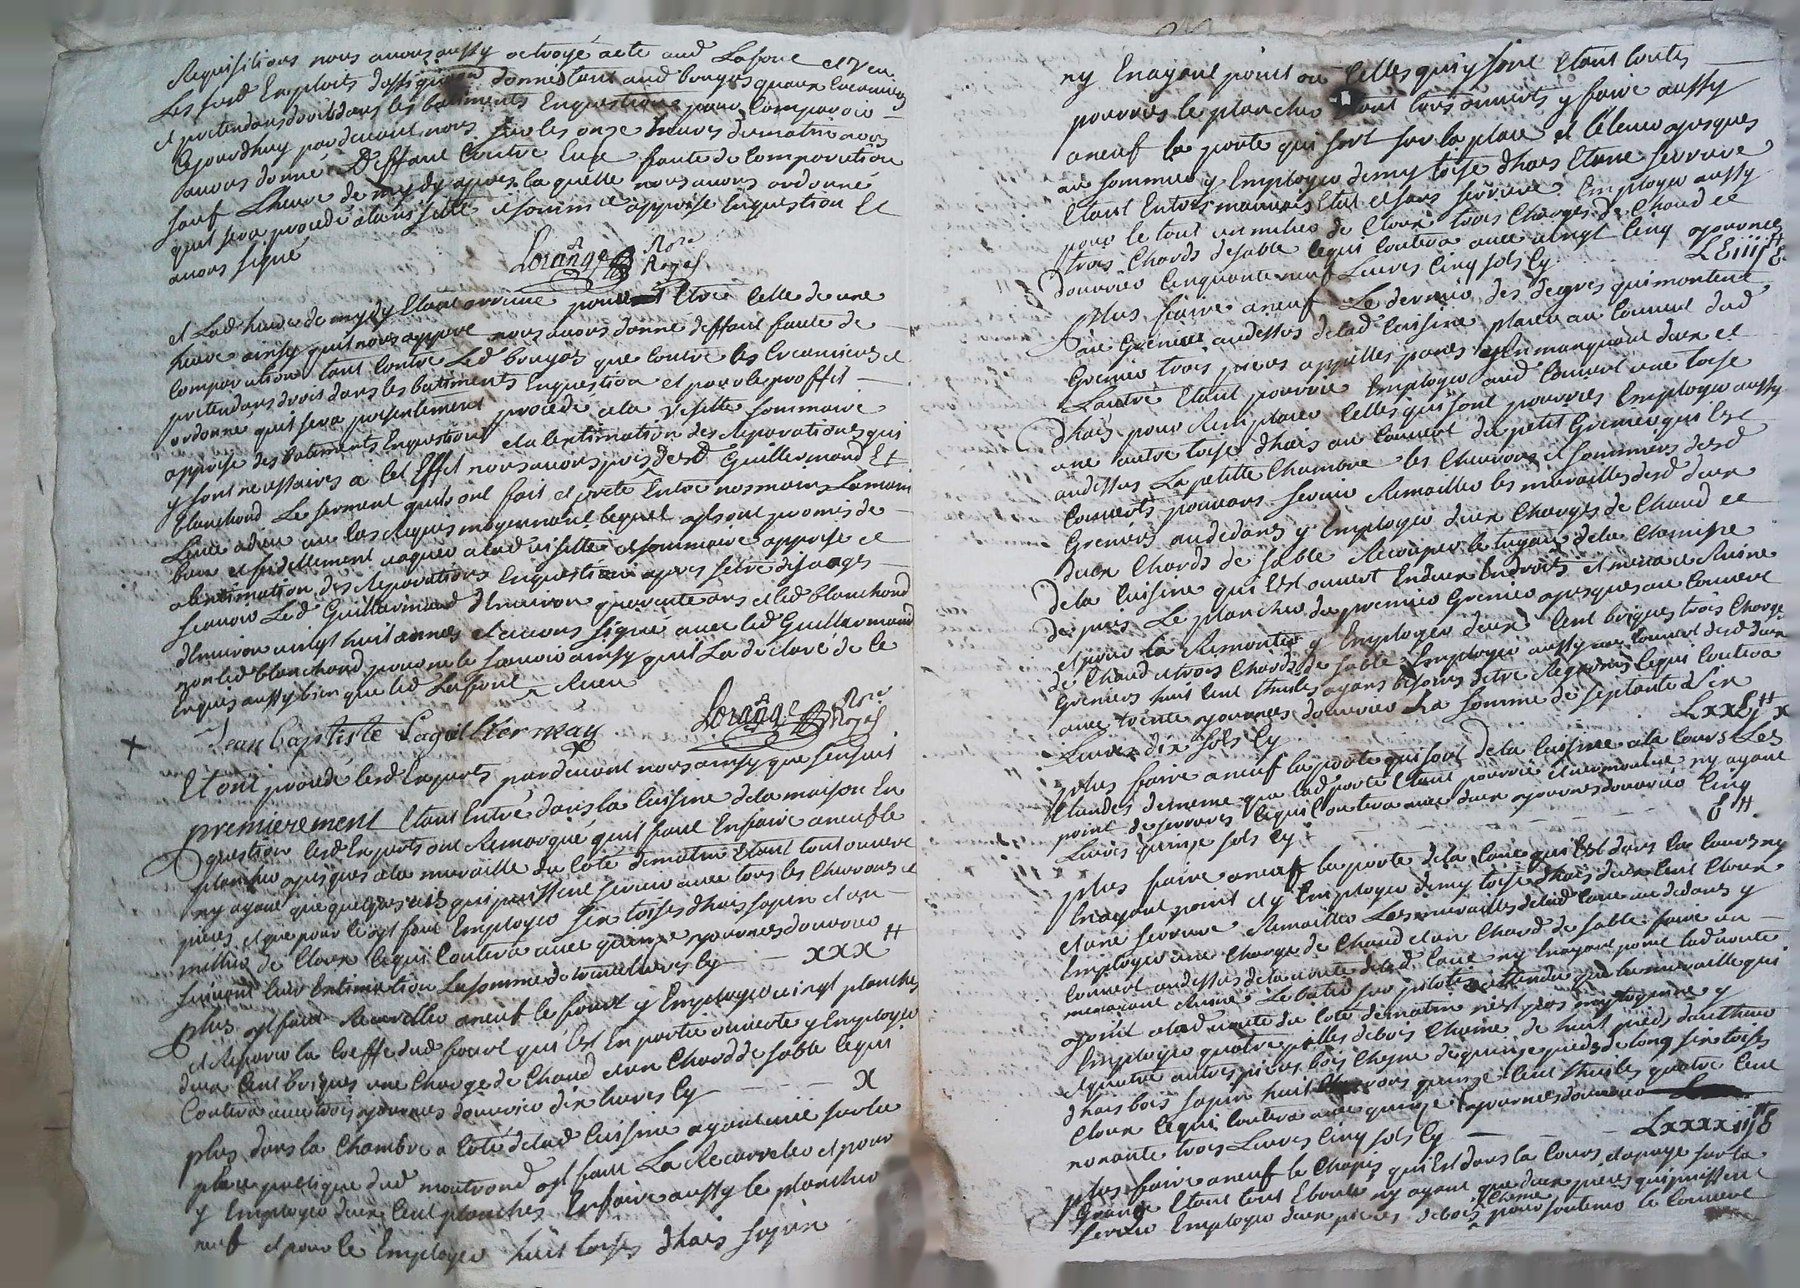 Requisitions nous avons aussy octroyé acte aud Lafont et veu
Les susd Exploits dassignãon donnés tant aud bouyos quaux Creanciers
et pretendans droit dans les batiments Enquestion pour Comparoir
cejourdhuy pardevant nous sur les onze heures du matin nous
avons donné Deffaut Contre Eux faute de Comparution
sauf Lheure de mydy apres laquelle nous avons ordonné
quil sera procedé a la visitte et somm.re apprise Enquestion Et
avons signé
Lorange No.re Royel
et Lad heure de mydy Etant arrivée pour Etre Celle de une
heure ainsy quil nous appert nous avons donné deffaut faute de
Comparution tant Contre Led bouyos que Contre les Creanciers et
pretendans droit dans les batiments Enquestion et pour le proffit
ordonne quil sera presentement procedé a la visitte sommaire
apprise des batiments Enquestion et a lextimation des Reparations qui
y sont necessaires a Cet Effet nous avons pris desd Guillermond Et
blanchond Le serment quils ont fait et preté Entre nos mains La main
Levée a dieu au Cas Requis moyennant lequel ils ont promis de
bien et fidellement vaquer a lad visitte et sommaire apprise et
a lextimation des Reparations Enquestion apres setre dis ages
scavoir Led Guillermond denviron quarente ans et led blanchond
denviron vingt huit années et avons signé avec led Guillermond
non led blanchond pour ne le scavoir ainsy quil La declaré de Ce
Enquis aussy bien que led Lafont
Jean baptiste Lorange No.re Royel
Et ont procedé lesd Experts pardevant nous ainsy que sensuit
premierement Etant Entré dans la Cuisine de la maison En
question lesd Experts ont Remarqué quil faut Enfaire aneuf le
plancher jusques a la muraille du Coté de matin Etant tout ouvert
ny ayant que quelques ais qui puissent servir avec tous les Chevrons et
pieces et que pour Ce il faut Employer six toises dhais sapin et un
millier de Cloux Ce qui Coutera avec quinze journées douvrier
suivant leur Extimation La somme de trente livres Cy XXX ₶
plus il faut Recarreller aneuf le fourt y Employer vingt planches
et Reparer la Coeffe dud fourt qui Est En partie ouverte y Employer
deux Cent briques une Charge de Chaud et un Chard de sable Ce qui
Coutera avec trois journées douvrier dix livres Cy X
plus dans la Chambre a Coté de lad Cuisine ayant vüe sur la
place publique dud montrond il faut La Recarreler et pour
y Employer deux Cent planches Enfaire aussy le plancher
neuf et pour Ce Employer huit toises dhais sapin
ny Enayant point ou Celles qui y sont Etant toutes
pourries le plancher Etant tous ouverts y faire aussy
aneuf la porte qui sort sur la place et lelever jusques
au sommier y Employer demy toise dhais Etant serrure
Etant En tres mauvais Etat et sans serrure Employer aussy
pour le tout un millier de Cloux trois Charges de Chaud et
trois Chards de sable Ce qui Coutera avec vingt Cinq journées
douvrier Cinquante neuf Livres Cinq sols Cy
plus faire aneuf Le dernier des degres qui montent
au Grenier audessus de lad Cuisine placer au Couvert dud
Grenier trois pieces appellés panes Enmanquant deux et
Lautre Etant pourrie Employer aud Couvert une toise
dhais pour Remplacer Celles qui sont pourries Employer aussy
une autre toise dhais au Couvert du petit Grenier qui Est
audessus La petite Chambre les Chevrons et sommiers desd
Couverts pouvans servir Remailler les murailles desd deux
Greniers audedans y Employer deux Charges de Chaud et
deux Chards de sable Recouper le tuyau de la Cheminée
de la Cuisine qui Est ouvert Endeux Endroits et menace Ruine
depuis Le plancher du premier Grenier jusques au Couvert
et pour la Remonter y Employer deux Cent briques trois Charges
de Chaud et trois Chards de sable Employer aussy au Couvert desd deux
Greniers huit Cent thuiles ayans besoins detre Regouttés Ce qui Coutera
avec trente journées douvrier La somme de septante six
Livres dix sols Cy
plus faire aneuf la porte qui sort de la Cuisine a la Cour Les
Etandes de meme que lad porte Etant pourrie et vermoulue ny ayant
point de serrures Ce qui Coutera avec deux journées douvrier Cinq
Livres quinze sols Cy
plus faire aneuf la porte de la Cave qui Est dans la Cour ny
Enayant point et y Employer demy toise dhais deux Cent Cloux
et une serrure Remailler Les murailles de lad Cave audedans y
Employer une Charge de Chaud et un Chard de sable faire un
Couvert audessus de la voute de lad Cave ny Enayant point lad voute
menaçant Ruine Le batir sur pilotis attendu que la muraille qui
joint a lad voute du Coté de matin nest pas mytoyenne y
Employer quatre pilles de bois Chaine de huit pieds dauttheur
et quatre autres pieces bois Chesne de quinze pieds de long six toises
dhais bois sapin huit Chevrons quinze Cent thuiles quatre Cent
Cloux Ce qui Coutera avec quinze journées douvrier
nonante trois Livres Cinq sols Cy
plus faire aneuf le Chapit qui Est dans la Cour et apuyé sur la
Grange Etant tout Eboulé ny ayant que deux pieces qui puissent
servir Employer deux pieces de bois Chesne pour soutenir le Couvert